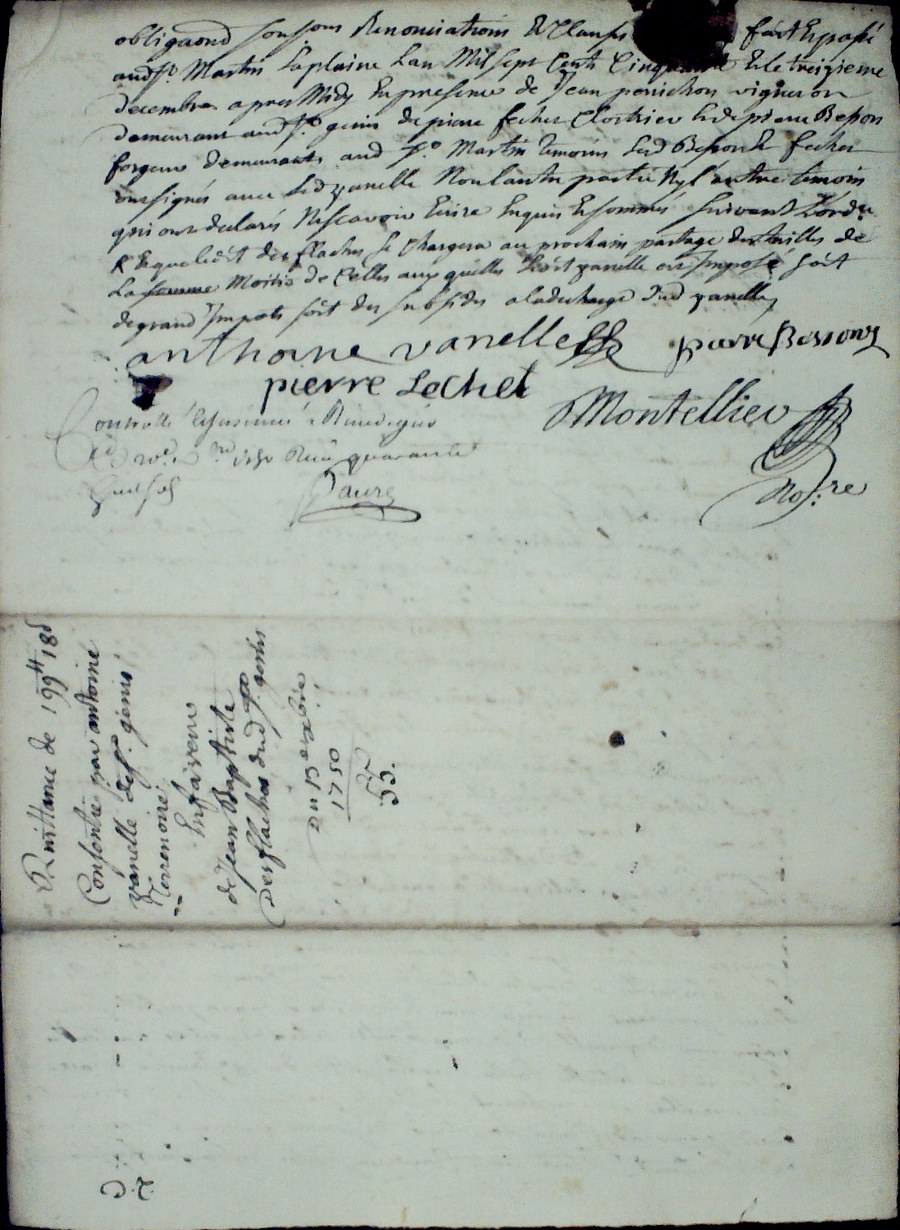 obligaond sousous Renonciations & Clauses fait & passé
aud St Martin Laplaine Lan Mil Sept Cents Cinquante & le treizieme
Decembre apres Midy En presence de Jean perrichon vigneron
Demeurant aud St genis de pierre fechet Cloutrier & de pierre Besson
forgeur demeurants aud St Martin temoins Led Besson & fechet
ont signés avec Led vanelle Non Lautre partie Ny l'autre temoin
qui ont declarés Ne scavoir Ecrire Enquis & sommés suivant Lordce
& Lequel dt desflaches se chargera au prochain partage des tailles de
La somme Moitié de Celles aux quelles Ledit vanelle est Imposé soit
de grand Impots soit des subsides a la decharge dud vanelle
anthoine vanelle pierre Besson
pierre Lechet
Montellier
Controllé
quarante
Faure
No.re
Quittance de 199tt 18s
Consentie par antoine
vanelle de St genis
Terrenoire
En faveur
de Jean Baptiste
Desflaches dud St genis
Du 13e xbre
1750
55.